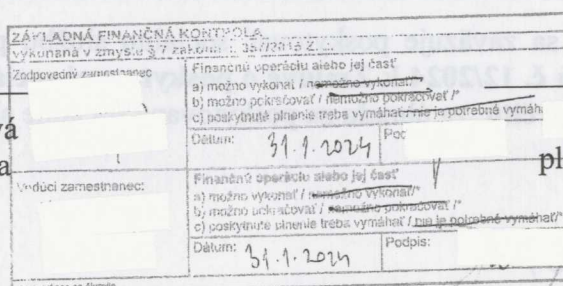 ZÁKLADNÁ FINANČNÁ KONTROLA
vykonaná v zmysle § 7 zákona č. 357/2015 Z. z.
Zodpovedný zamestnanec
Finančnú operáciu alebo jej časť
a) možno vykonať / nemožno vykonať/*
b) možno pokračovať / nemožno pokračovať /*
c) poskytnuté plnenie treba vymáhať / nie je potrebné vymáh
Dátum: 31.1.2024
vá
a
pl
Vedúci zamestnanec:
Finančnú operáciu alebo jej časť
a) možno vykonať / nemožno vykonať/*
b) možno pokračovať / nemožno pokračovať /*
c) poskytnuté plnenie treba vymáhať / nie je potrebné vymáhať/*
Dátum: 31.1.2024
Podpis: